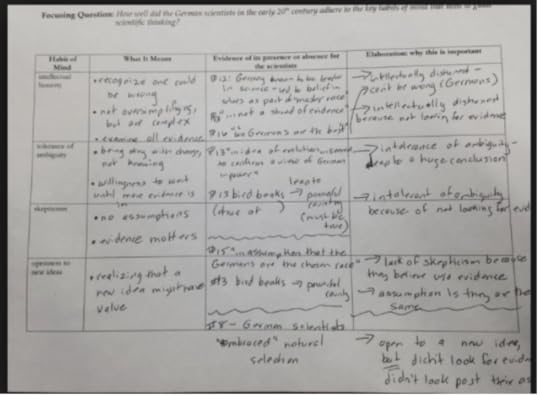 Focusing Question: How well did the German scientists in the early 20th century adhere to the key habits of mind that
scientific thinking?
Habit of Mind
What It Means
Evidence of its presence or absence for the scientists
Elaboration: why this is important
intellectual honesty
• recognize one could be wrong
• not oversimplifying, but are complex
• examine all evidence
in science
as part of master race"
not a shred of evidence"
Germans are the best"
→ intellectually dishonest -
can't be wrong (Germans)
→ intellectually dishonest
because not looking for evidence
tolerance of ambiguity
• being okay with change, not knowing
• willingness to wait until more evidence is in
idea of evolution
to confirm a view of German
¶13 bird beaks → powerful country
(must be true)
→ intolerance of ambiguity -
leap to a huge conclusion
→ intolerant of ambiguity
because of not looking for evid
skepticism
• no assumptions
• evidence matters
¶15 "an assumption that the
Germans are the chosen race"
bird beaks → powerful county
→ lack of skepticism because
they believe w/o evidence
→ assumption is they are the
same
openness to new ideas
• realizing that a
new idea might have
value
¶8 - German scientists
"embraced" natural
selection
→ open to a new idea,
but didn't look for evid
didn't look past their as